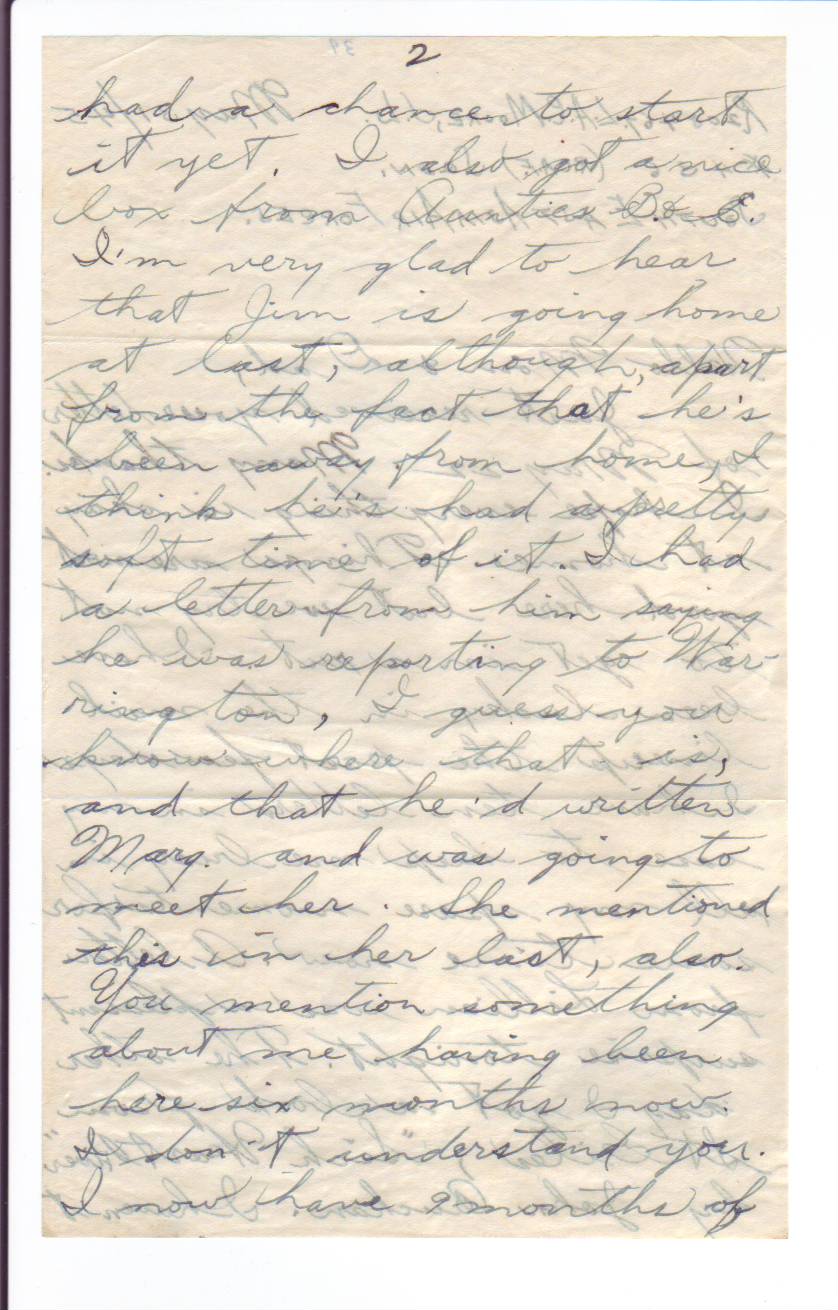 2
had a chance to start
it yet. I also got a nice
box from Aunties B. & E.
I'm very glad to hear
that Jim is going home
at last, although, apart
from the fact that he's
been away from home, I
think he's had a pretty
soft time of it. I had
a letter from him saying
he was reporting to War-
rington, I guess you
know where that is,
and that he'd written
Marg. and was going to
meet her. She mentioned
this in her last, also.
You mention something
about me having been
here six months now.
I don't understand you.
I now have 9 months of